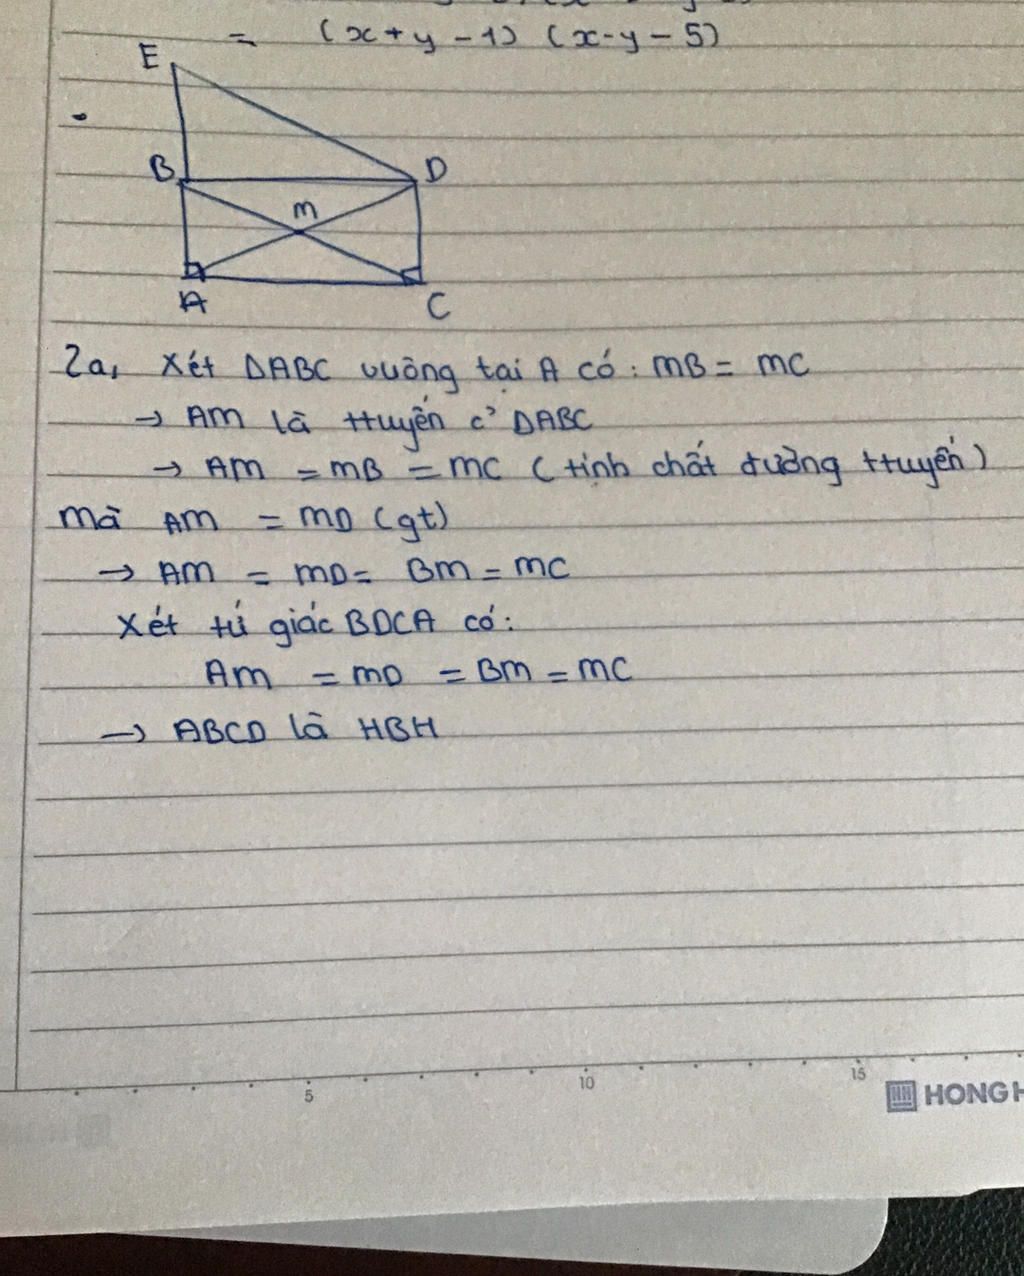 = (x+y-1) (x-y-5)
E
B
D
m
A
C
2a, Xét ΔABC vuông tại A có: mB = mC
→ Am là ttuyến c' ΔABC
→ Am = mB = mC (tính chất đường ttuyến)
mà Am = mD (gt)
→ Am = mD = Bm = mC
Xét tứ giác BDCA có:
Am = mD = Bm = mC
→ ABCD là HBH
5
10
15
HONG H